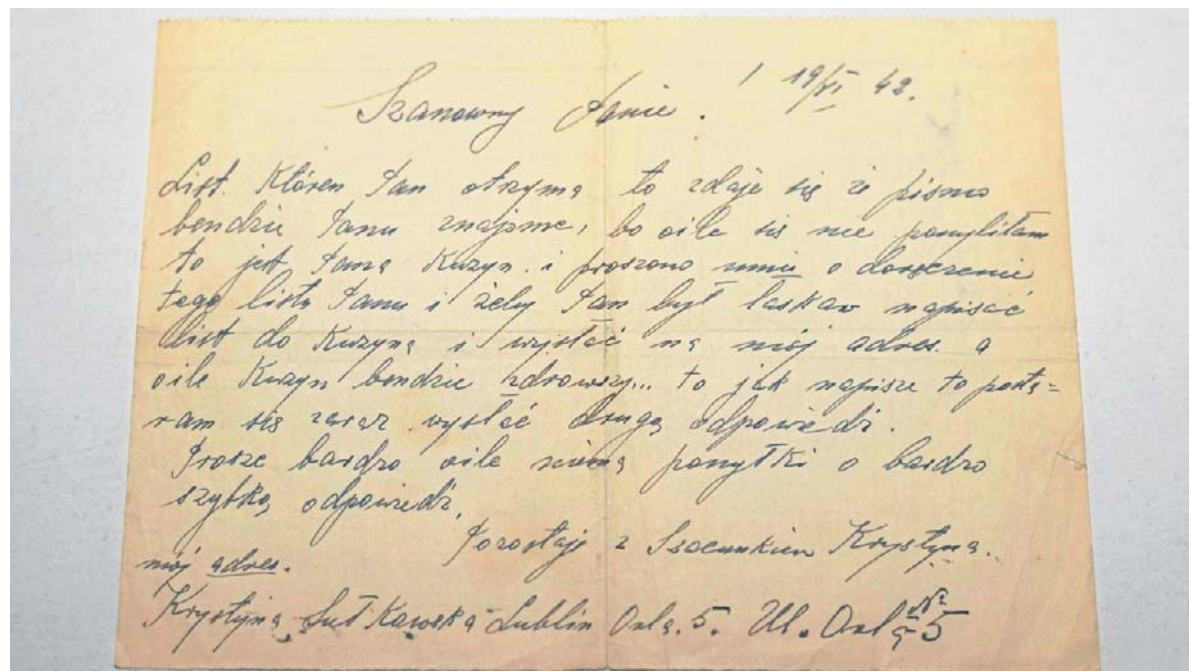 19/VI 42.
Szanowny Panie.
List. Któren Pan otrzyma to zdaje się że pismo
bendzie Panu znajome, bo oile sie nie pomyliłam
to jest Pana Kuzyn. i proszono mnie o doręczenie
tego listu Panu i żeby Pan był łaskaw napisać
list do Kuzyna i wysłać na mój adres. a
oile Kuzyn bendzie zdrowszy... to jak napisze to posta=
ram się zaraz wysłać drugą odpowiedź.
Prosze bardzo oile niema pomyłki o bardzo
szybką odpowiedź,
Pozostaje z Szacunkiem Krystyna.
mój adres.
Krystyna Lublin Orla. 5. Ul. Orla № 5